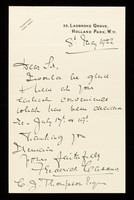 32, Ladbroke Grove,
Holland Park, W.11.
5th July 1922
Dear Sir,
I would be glad
to hear at your
earliest convenience
which has been decided
on. July 17th or 19th.
Thanking you
I remain
Yours faithfully
Frederick
C. J. Thompson Esqre